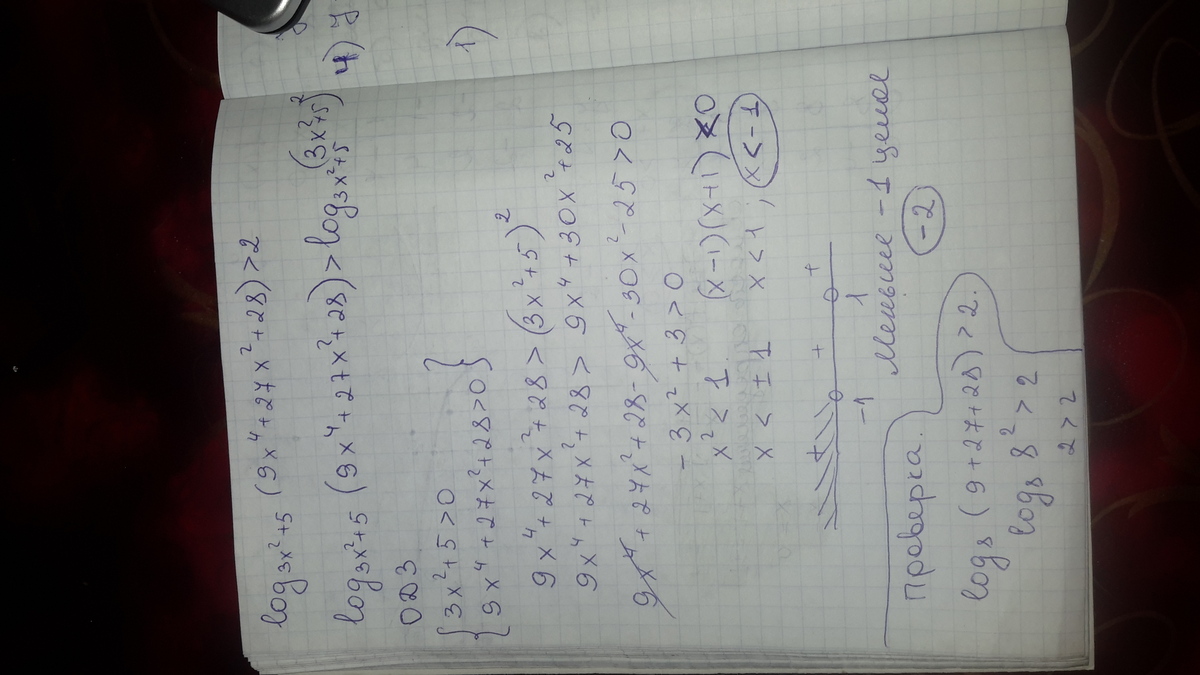 log₃ₓ²₊₅ (9x⁴+27x²+28)>2
log₃ₓ²₊₅ (9x⁴+27x²+28)>log₃ₓ²₊₅ (3x²+5)²
ОДЗ
{3x²+5>0
{9x⁴+27x²+28>0}
9x⁴+27x²+28>(3x²+5)²
9x⁴+27x²+28> 9x⁴+30x²+25
9x⁴+27x²+28-9x⁴-30x²-25>0
-3x²+3>0
x²<1 (x-1)(x+1)<0
x<±1 x<1; x<-1
+ + +
-1 1
Меньшее -1 целое
-2
Проверка.
log₈(9+27+28)>2.
log₈8²>2
2>2
4) y
1)